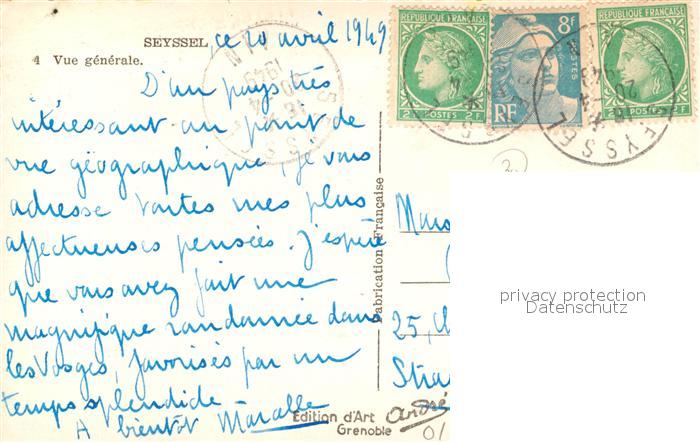 SEYSSEL, ce 20 avril 1949
4 Vue générale.
D'un pays très
intéressant au point de
vue géographique, je vous
adresse toutes mes plus
affectueuses pensées. J'espère
que vous avez fait une
magnifique randonnée dans
les Vosges, favorisés par un
temps splendide
A bientôt
Fabrication Française
Édition d'Art André
Grenoble
REPUBLIQUE FRANÇAISE
2F POSTES 2F
8F
POSTES
RF
REPUBLIQUE FRANÇAISE
2F POSTES 2F
SEYSSEL
25,
Stras
privacy protection
Datenschutz
01